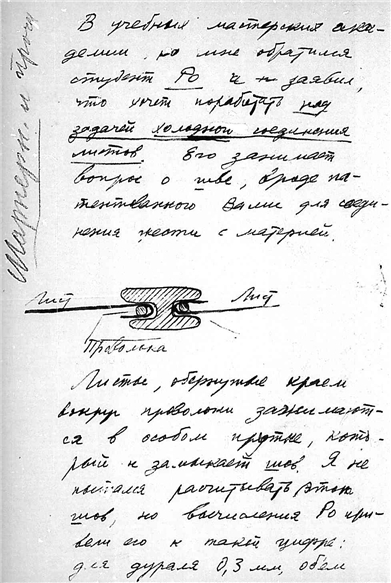 Шарнеры и проч
В учебных мастерских ака-
демии, ко мне обратился
студент Ро и заявил,
что хочет поработать над
задачей холодного соединения
листов. Его занимает
вопрос о шве, вроде па-
тентованного Вами для соеди-
нения жести с материей.
Лист
Лист
Проволока
Листы, обернутые краем
вокруг проволоки зажимают-
ся в особом прутке, кото-
рый и замыкает шов. Я не
пытался расчитывать этот
шов, но вычисления Ро при-
вели его к такой цифре:
для дураля 0,3 мм, обем